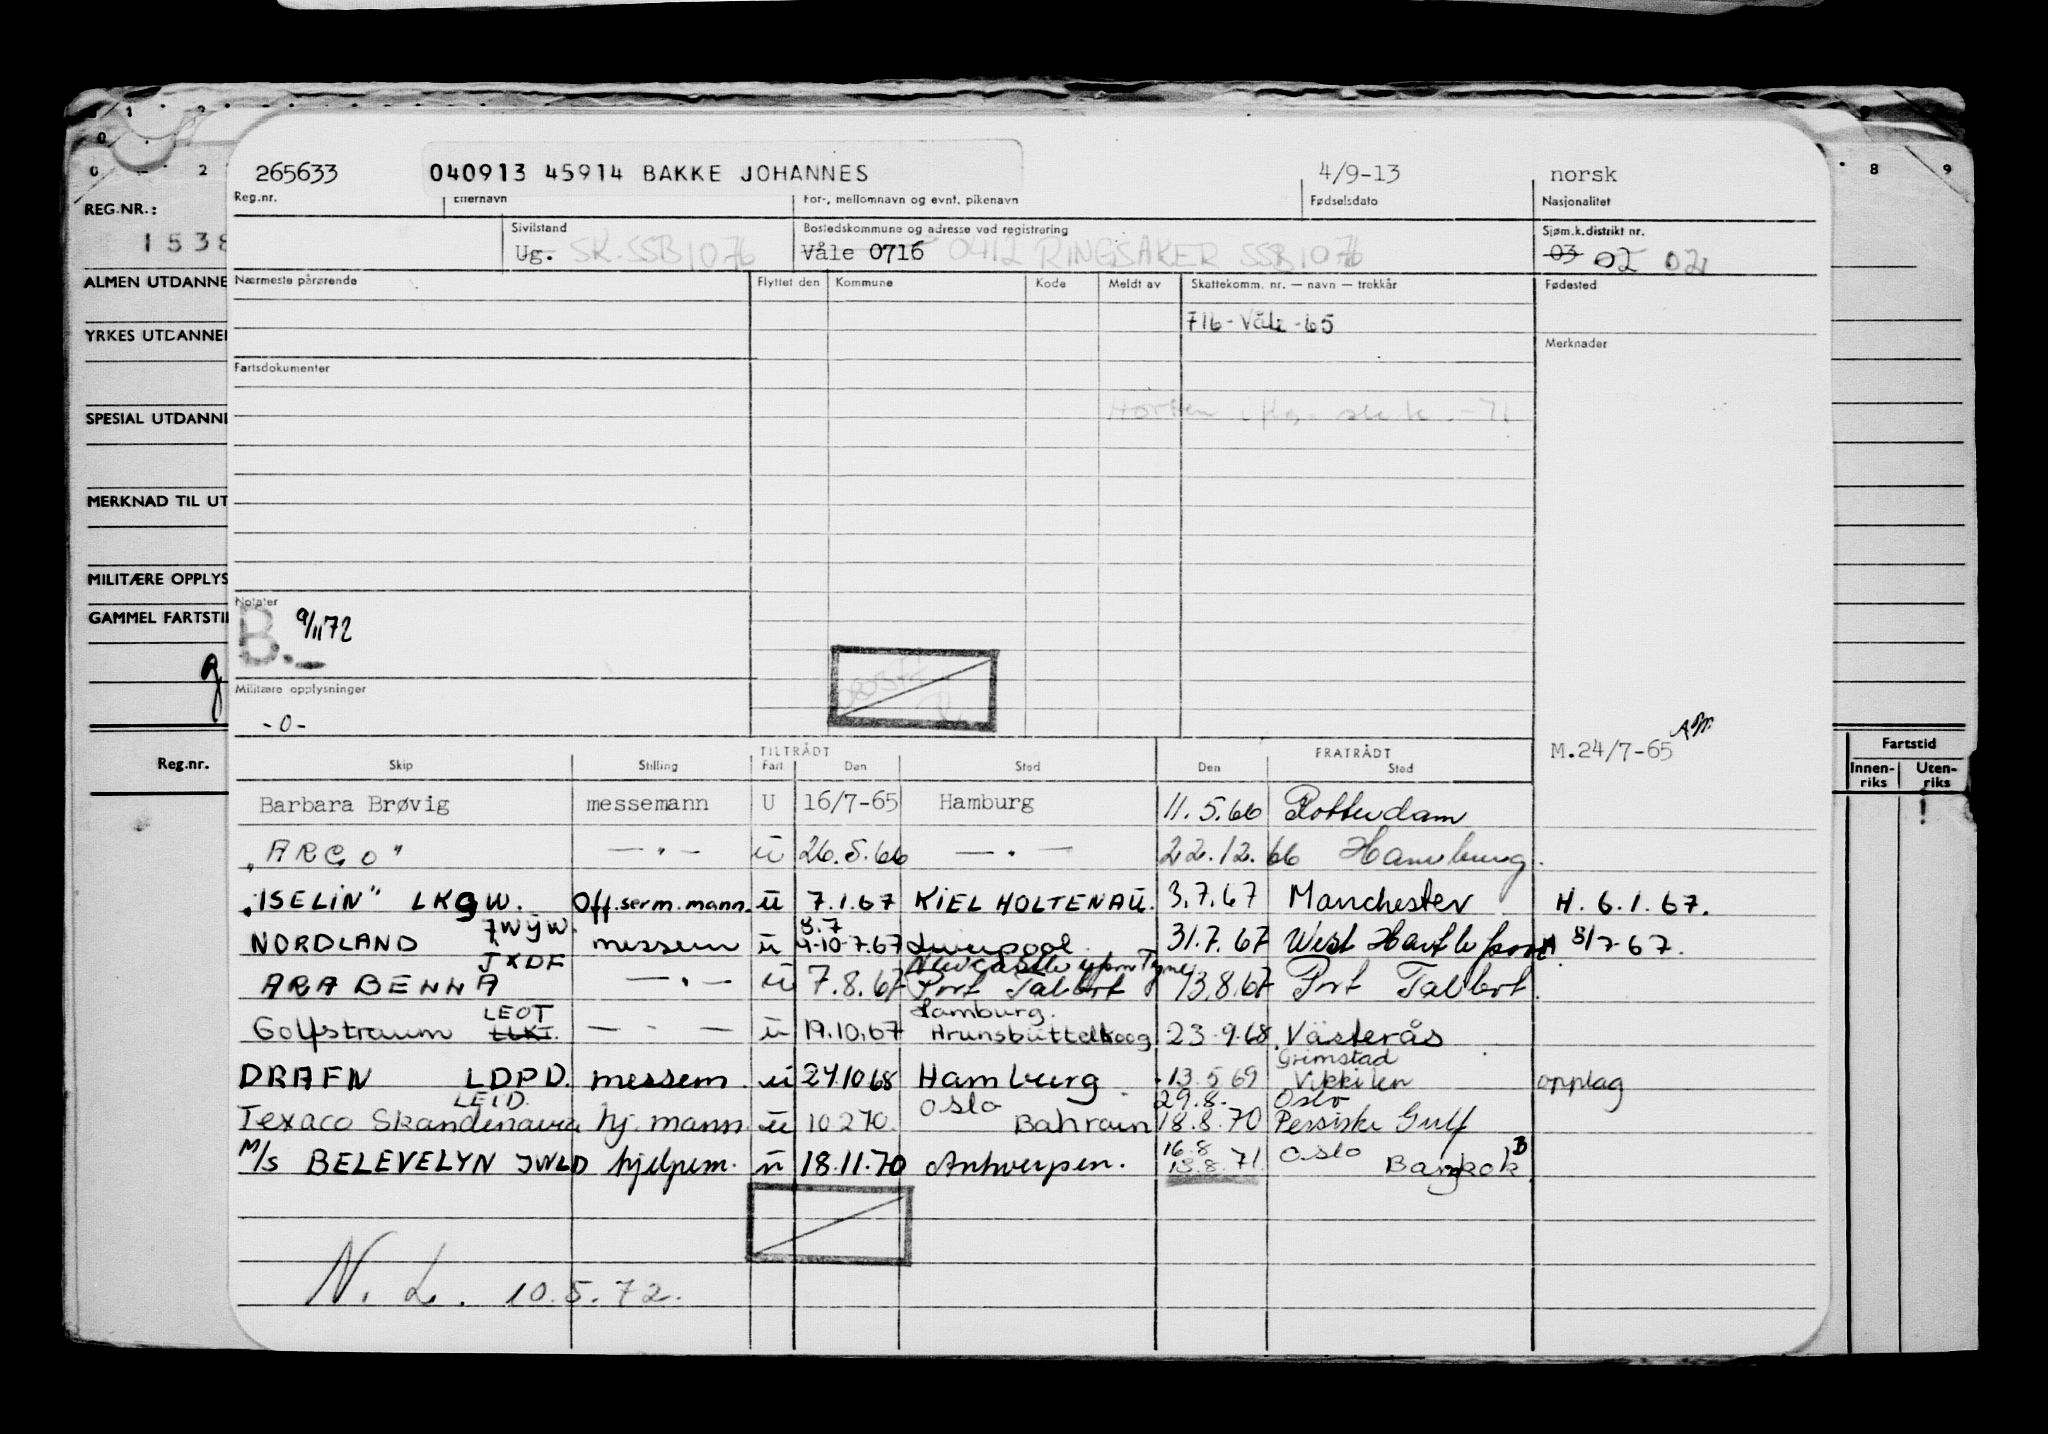 0 1 2 8 9
REG.NR.:
1538
ALMEN UTDANNE
YRKES UTDANNE
SPESIAL UTDANN
MERKNAD TIL UT
MILITÆRE OPPLYS
GAMMEL FARTSTI
Reg.nr.
265633 040913 45914 BAKKE JOHANNES 4/9-13 norsk
Reg.nr. Etternavn For-, mellomnavn og evnt. pikenavn Fødselsdato Nasjonalitet
Sivilstand Bostedskommune og adresse ved registrering Sjøm.k.distrikt nr.
Ug. SK.SSB1076 Våle 0716 0412 RINGSAKER SSB1076 03 02 02
Nærmeste pårørende Flyttet den Kommune Kode Meldt av Skattekomm. nr. — navn — trekkår Fødested
716-Våle-65
Merknader
Fartsdokumenter
Horten -71
Notater
B. 9/11 72
Militære opplysninger
-0-
TILTRÅDT FRATRÅDT M.24/7-65
Skip Stilling Fart Den Sted Den Sted
Barbara Brøvig messemann U 16/7-65 Hamburg 11.5.66 Rotterdam
"ARGO" — " — u 26.5.66 — " — 22.12.66 Hamburg.
"ISELIN" LKGW. Off.serm.mann. u 7.1.67 KIEL HOLTENAU. 3.7.67 Manchester H. 6.1.67.
JWYW. 8.7
NORDLAND messem u 4-10-7.67 Liverpool 31.7.67 West Hartlepool A 8/7-67.
JXDF Newcastle upon Tyne
ARABENNA — " — u 7.8.67 Port Talbot 13.8.67 Port Talbot.
LEOT Hamburg.
Golfstraum LLKT. — " — u 19.10.67 Brunsbüttelkoog 23.9.68 Västerås
Grimstad
DRAFN LDPD. messem. u 24.10.68 Hamburg 13.5.69 Vikkilen opplag
LEID. Oslo 29.8. Oslo
Texaco Skandinavia hj. mann u 10.2.70. Bahrain 18.8.70 Persiske Gulf
16.8 Oslo B
M/S BELEVELYN JWLD hjelpem. u 18.11.70 Antwerpen. 13.8.71. Bangkok
N. L. 10.5.72.
Fartstid
Innen-riks Uten-riks